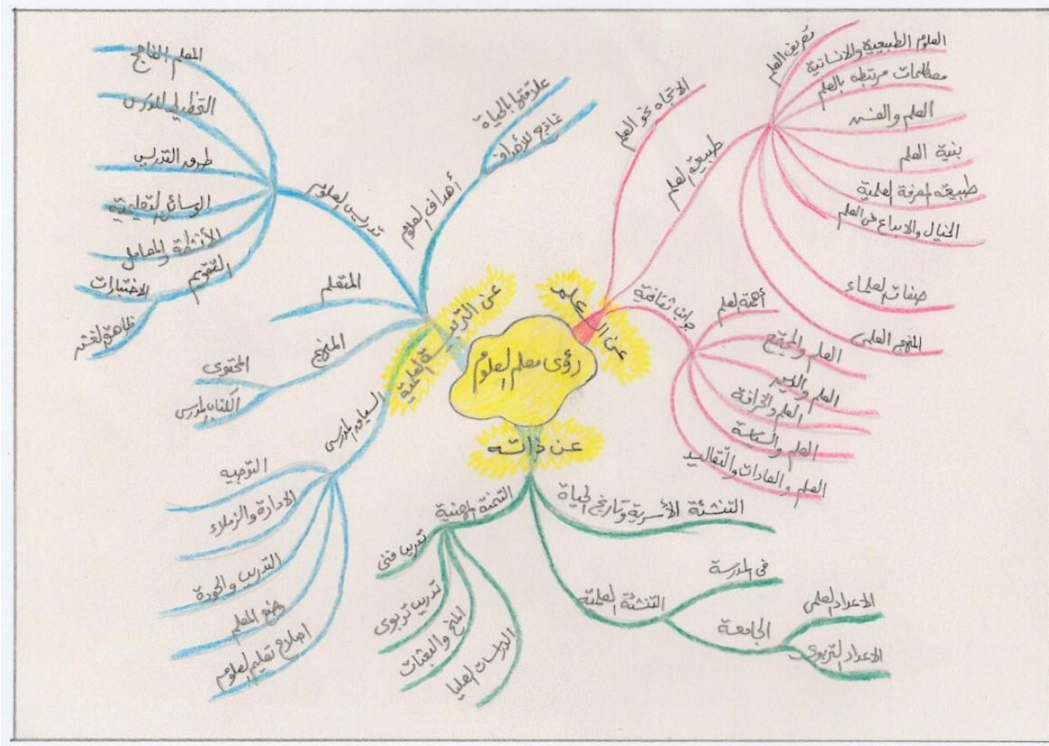 رؤى معلم العلوم
عن العلم
تعريف العلم
العلوم الطبيعية والانسانية
مصطلحات مرتبطه بالعلم
العلم والفن
بنية العلم
طبيعة المعرفة العلمية
الخيال والابداع فى العلم
صفات العلماء
المنهج العلمى
طبيعة العلم
الاتجاه نحو العلم
جوانب ثقافية
أهمية العلم
العلم والمجتمع
العلم والدين
العلم والخرافة
العلم والسياسة
العلم والعادات والتقاليد
عن ذاته
التنشئة الأسرية وتاريخ الحياة
التنشئة العلمية
فى المدرسة
الجامعة
الاعداد العلمى
الاعداد التربوى
التنمية المهنية
تدريب فنى
تدريب تربوى
المنح والبعثات
الدراسات العليا
عن التربية العلمية
أهداف العلوم
علاقتها بالحياة
نماذج للأهداف
تدريس العلوم
المعلم الناجح
التخطيط للدرس
طرق التدريس
الوسائل التعليمية
الأنشطة والمعامل
التقويم
الاختبارات
ظاهرة الغش
المتعلم
المنهج
المحتوى
الكتاب المدرسى
السياق المدرسى
التوجيه
الادارة والزملاء
التدريب والجودة
وضع المعلم
اصلاح تعليم العلوم